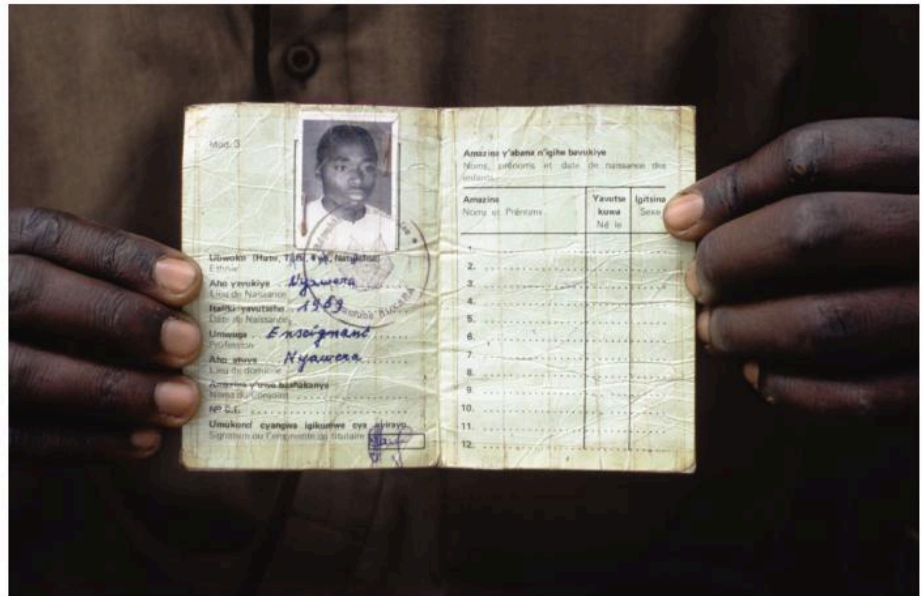 Mod. 3
Ubwoko (Hutu, Tutsi, Twa, Naturalisé)
Ethnie
Aho yavukiye Nyawera
Lieu de Naissance
Italiki yavutseho 1969
Date de Naissance
Umwuga Enseignant
Profession
Aho atuye Nyawera
Lieu de domicile
Amazina y'uwo bashakanye
Noms du Conjoint
No C.I.
Umukono cyangwa igikumwe cya nyirayo
Signature ou l'empreinte du titulaire
Amazina y'abana n'igihe bavukiye
Noms, prénoms et date de naissance des
enfants
Amazina Yavutse Igitsina
Noms et Prénoms kuwa Sexe
Né le
1.
2.
3.
4.
5.
6.
7.
8.
9.
10.
11.
12.